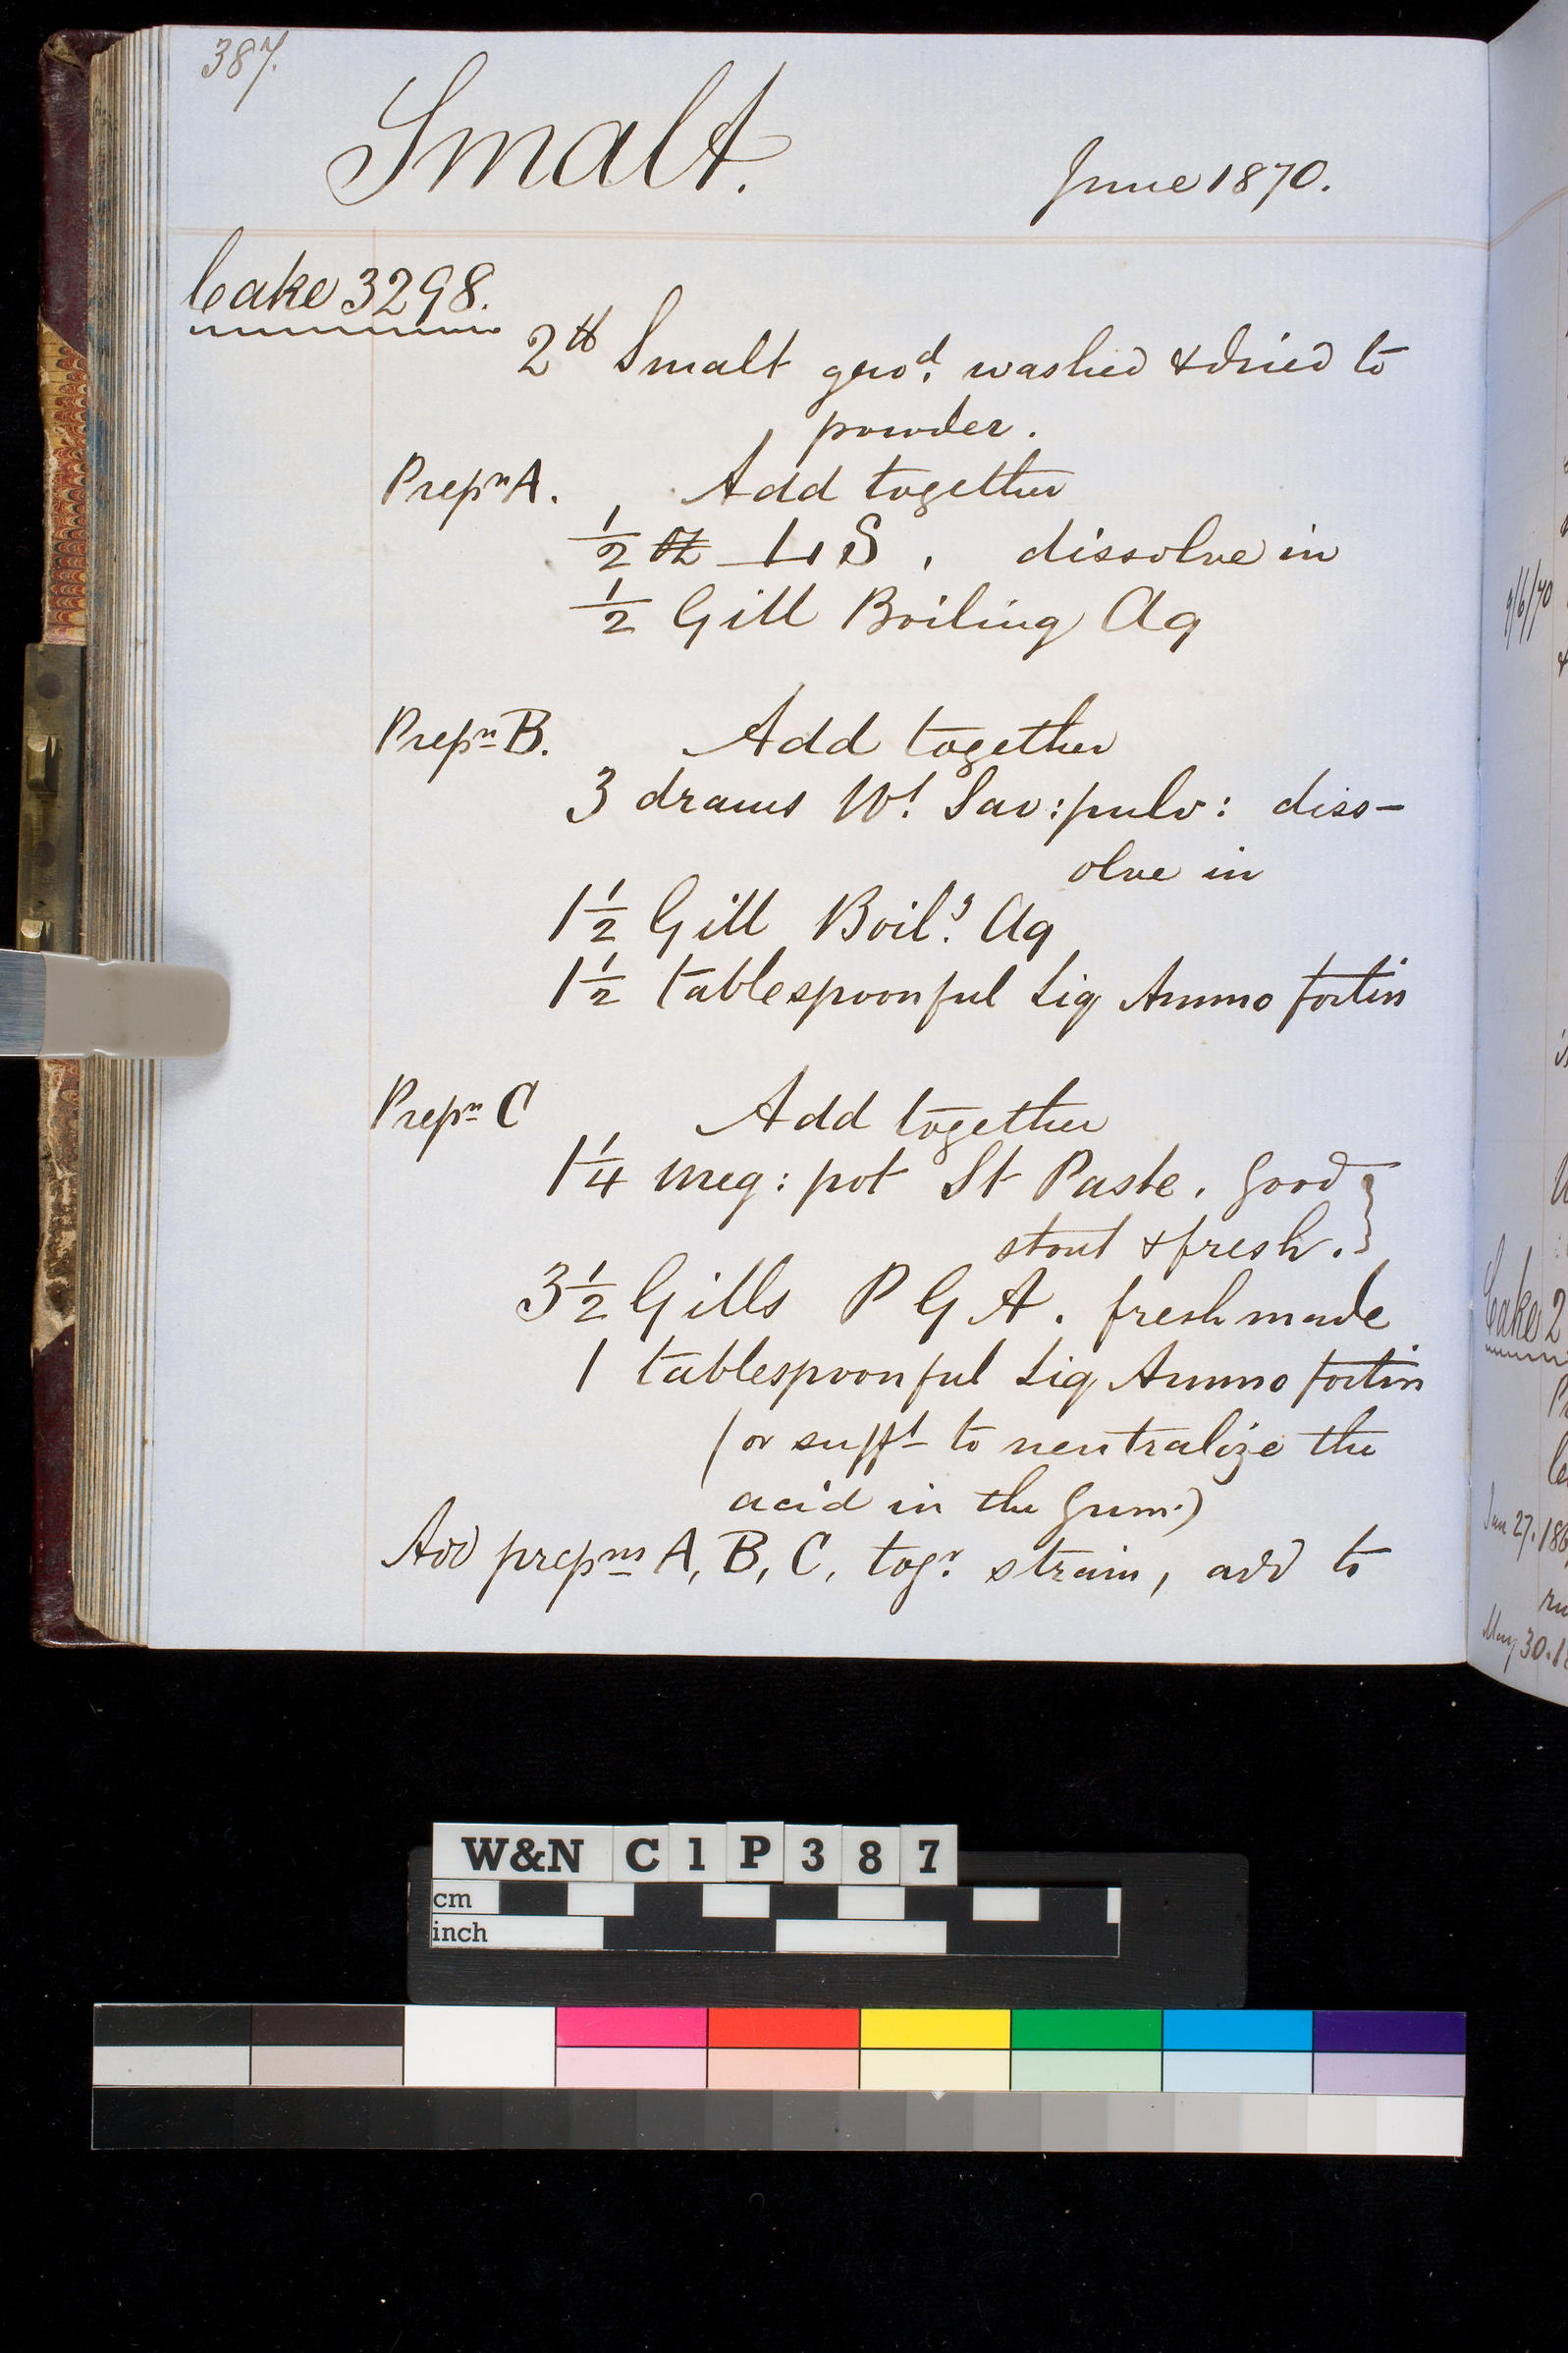 387.
Smalt.
June 1870.
Cake 3298.
2 lb Smalt grod. washed & dried to
powder.
Prepn A. Add together
1/2 oz L S, dissolve in
1/2 Gill Boiling Aq
Prepn B. Add together
3 drams Wt. Sav: pulv: diss-
olve in
1 1/2 Gill Boilg. Aq
1 1/2 tablespoonful Liq Ammo fortis
Prepn C Add together
1 1/4 meg: pot St Paste. good
stout & fresh.
3 1/2 Gills P G A. fresh made
1 tablespoonful Liq Ammo fortis
(or sufft to neutralize the
acid in the gum.)
Add prepns A, B, C, togr. strain, add to
9/6/70
Cake 2
Jan 27. 186
May 30. 18
W&N C1P387
cm
inch